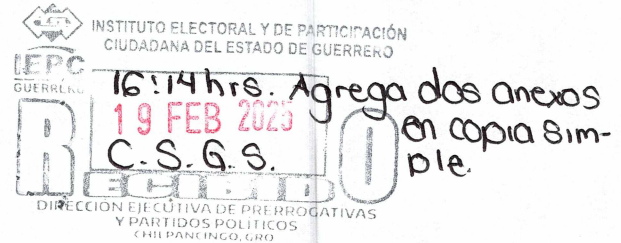 INSTITUTO ELECTORAL Y DE PARTICIPACIÓN
CIUDADANA DEL ESTADO DE GUERRERO
IEPC
GUERRERO
16:14 hrs. Agrega dos anexos
en copia sim-
ple.
19 FEB 2025
C.S.G.S.
RECIBIDO
DIRECCIÓN EJECUTIVA DE PRERROGATIVAS
Y PARTIDOS POLÍTICOS
CHILPANCINGO, GRO